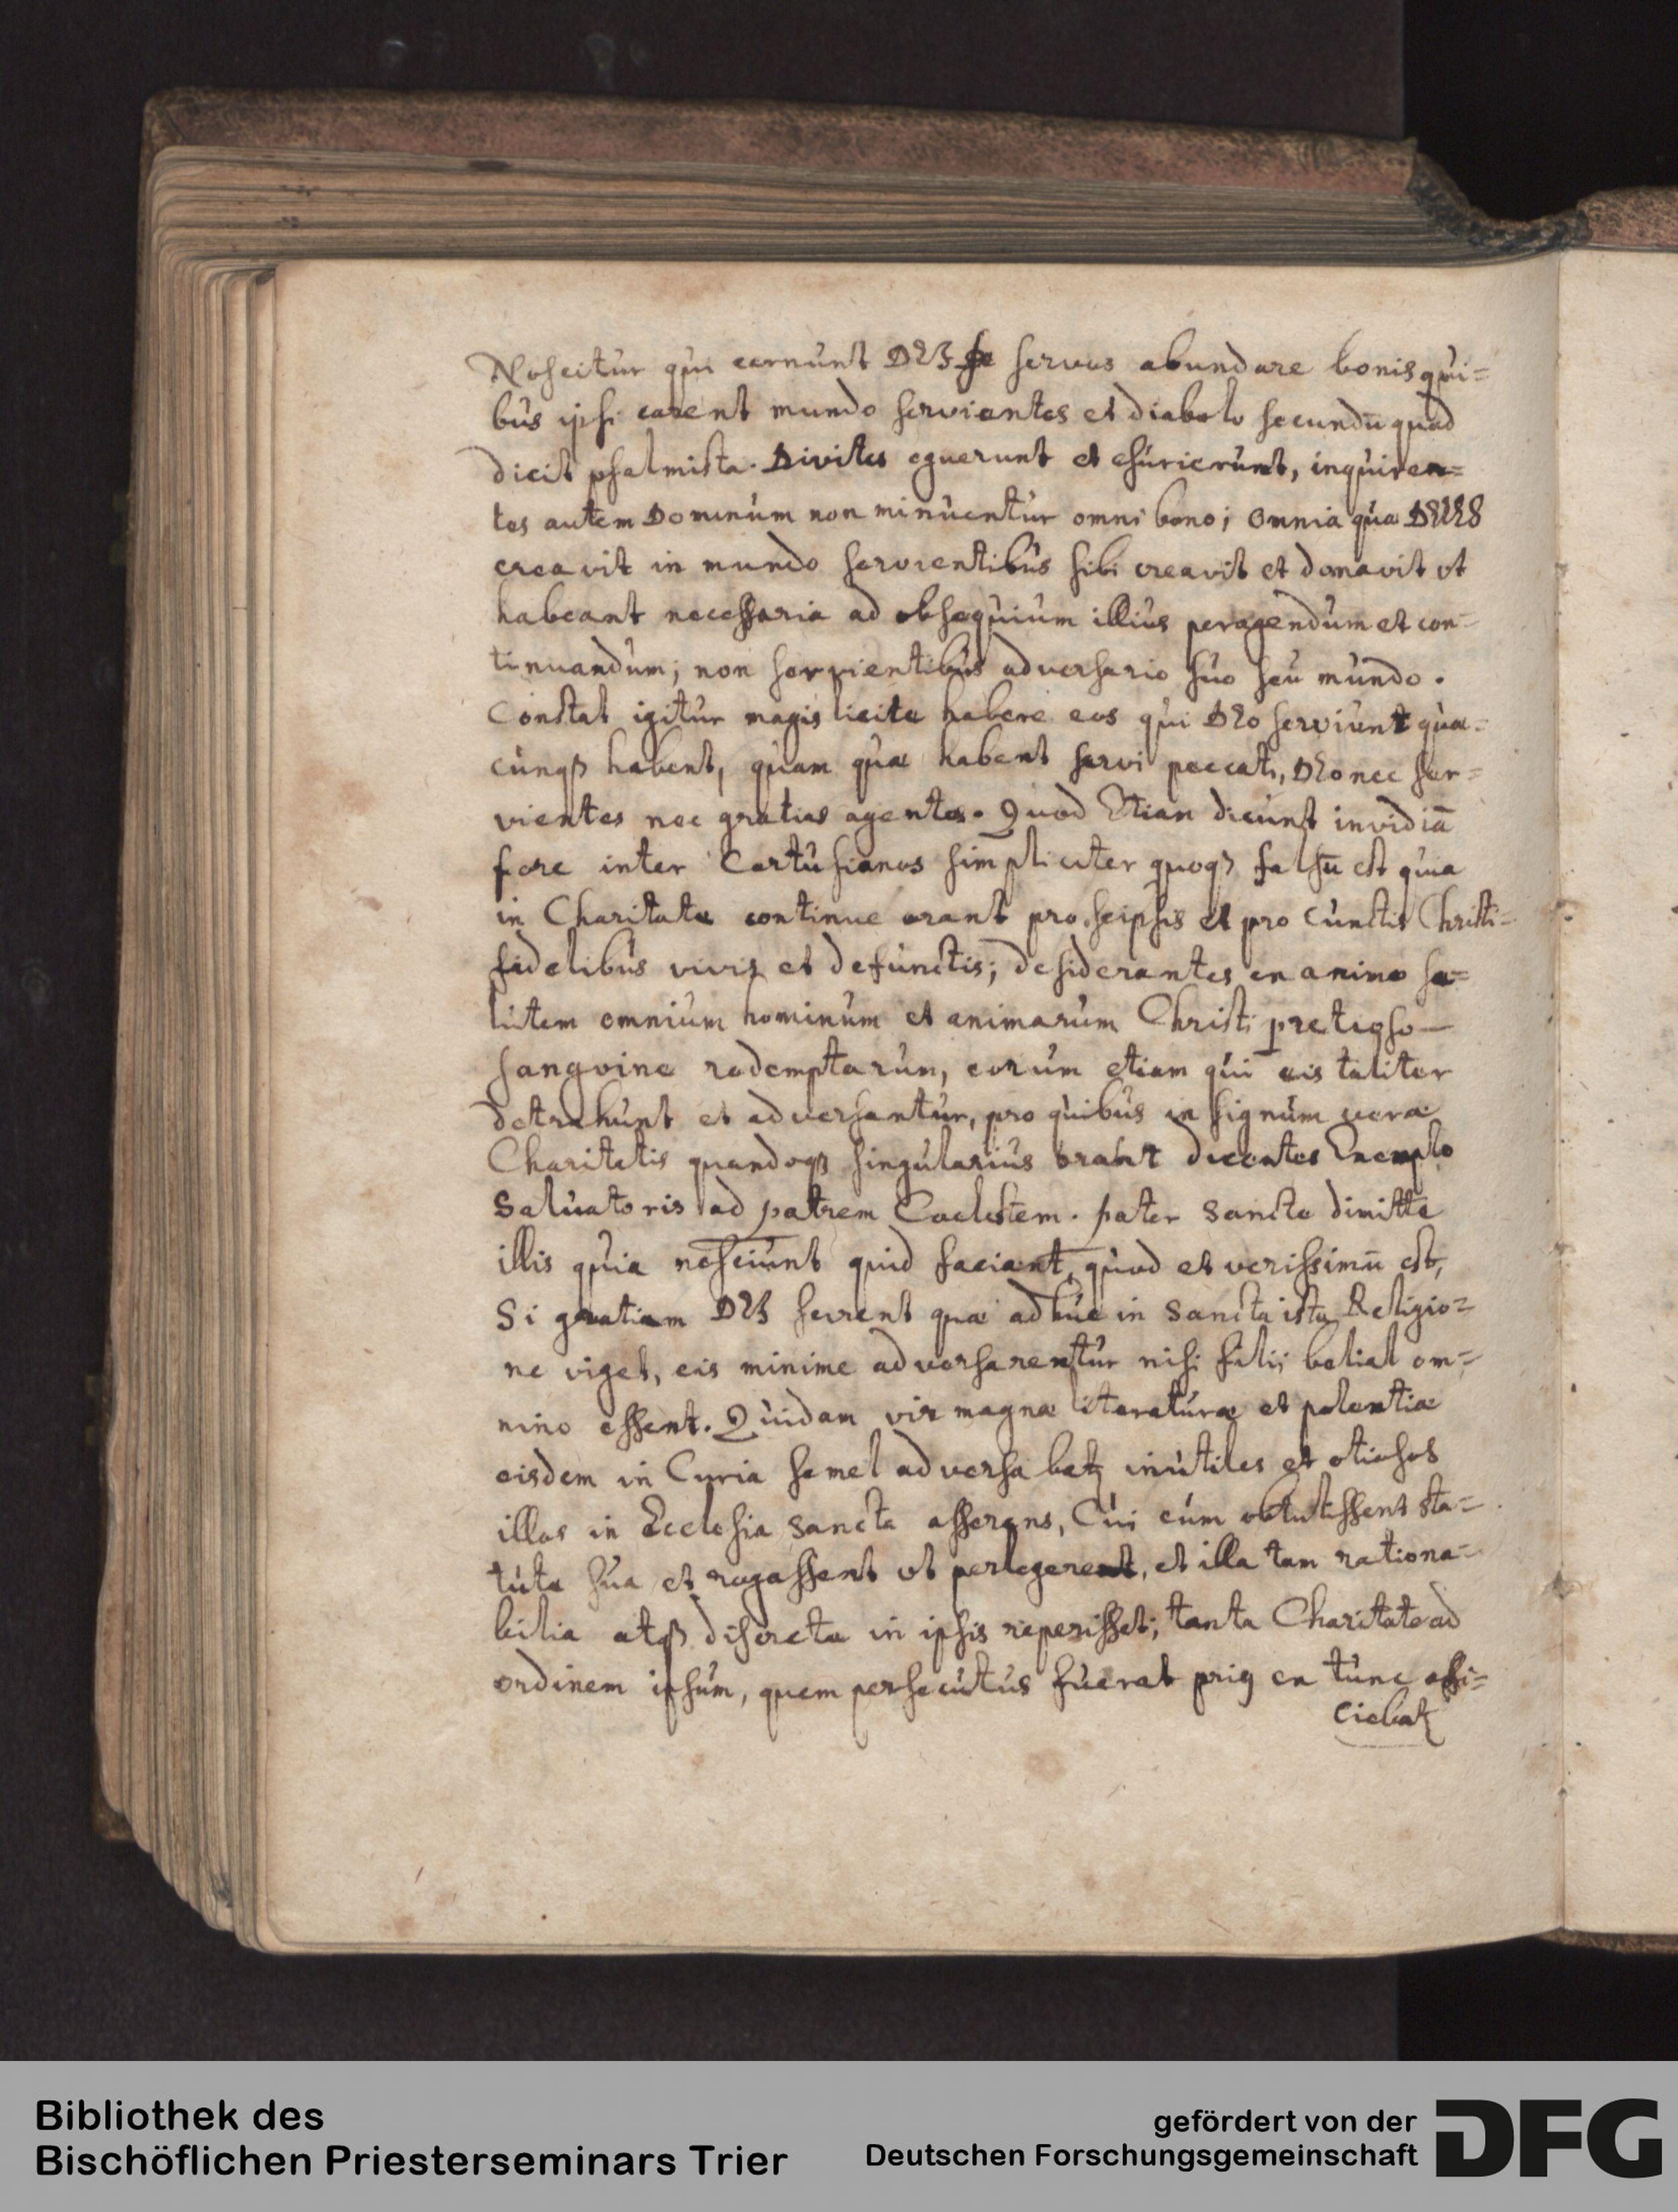 Noscitur qui cernunt DEI servos abundare bonis qui=
bus ipsi carent mundo servientes et diabolo secundū quod
dicit psalmista. Divites eguerunt et esurierunt, inquiren=
tes autem Dominum non minuentur omni bono; omnia quæ DEUS
creavit in mundo servientibus sibi creavit et donavit ut
habeant necessaria ad obsequium illius peragendum et con=
tinuandum; non servientibus adversario suo seu mundo.
Constat igitur magis licite habere eos qui DEo serviunt quæ=
cunqȝ habent, quam quæ habent servi peccati, DEo nec ser=
vientes nec gratias agentes. Quod Etiam dicunt invidiā
fore inter Cartusianos simpliciter quoqȝ falsū est quia
in Charitate continue orant pro seipsis et pro cunctis Christi=
fidelibus vivis et defunctis; desiderantes ex animo sa=
lutem omnium hominum et animarum Christi pretioso
sangvine redemptarum, eorum etiam qui eis taliter
detrahunt et adversantur, pro quibus in signum veræ
Charitatis quandoqȝ singularius orant dicentes Exemplo
Saluatoris ad patrem Coelestem. pater Sancte dimitte
illis quia nesciunt quid faciant, quod et verissimū est,
Si gratiam DEI scirent quæ adhuc in Sancta ista Religio=
ne viget, eis minime adversarentur nisi filij belial om=
nino essent. Quidam vir magnæ literaturæ et potentiæ
eisdem in Curia semel adversabatʒ inutiles et otiosos
illos in Ecclesia Sancta asserens, Cui cum obtulissent sta=
tuta sua et rogassent ut perlegeret, et illa tam rationa=
bilia atqȝ discreta in ipsis reperisset; tanta Charitate ad
ordinem ipsum, quem persecutus fuerat priꝰ ex tunc affi=
ciebatʒ
Bibliothek des
Bischöflichen Priesterseminars Trier
gefördert von der
Deutschen Forschungsgemeinschaft
DFG